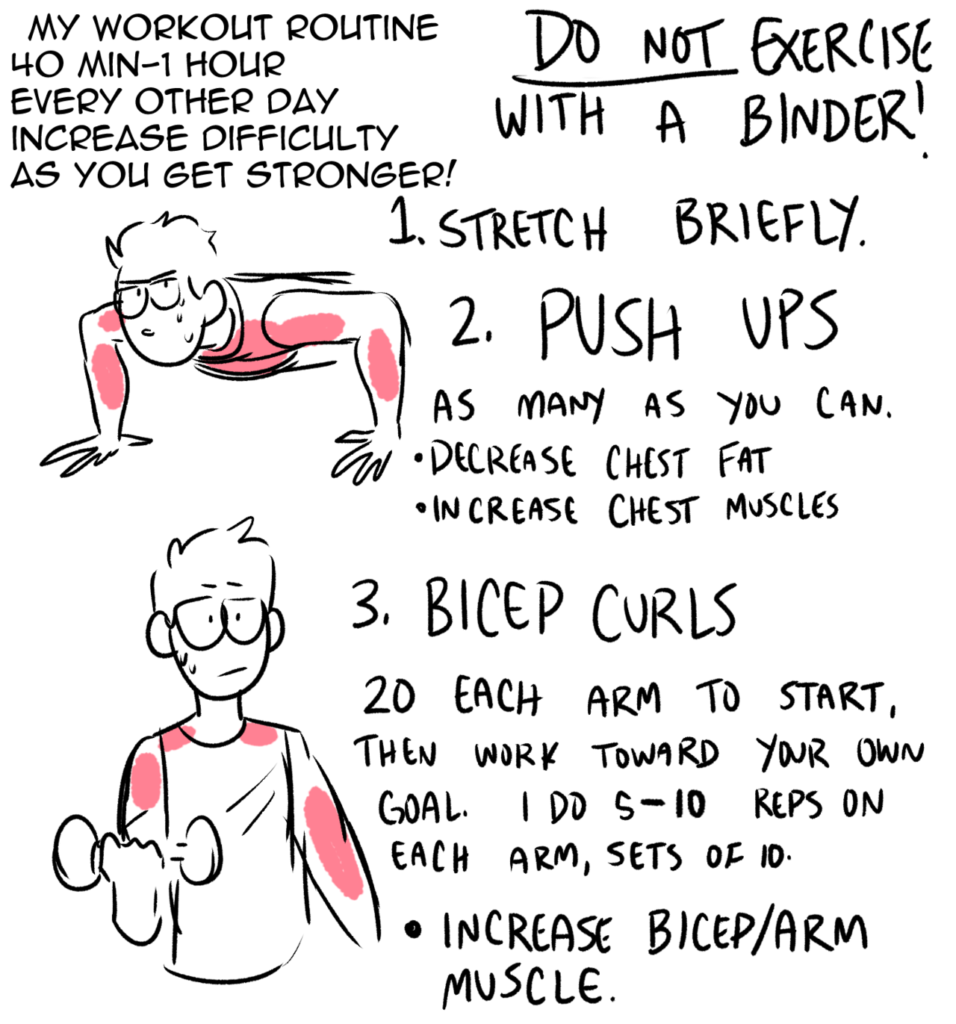 MY WORKOUT ROUTINE
40 MIN-1 HOUR
EVERY OTHER DAY
INCREASE DIFFICULTY
AS YOU GET STRONGER!
DO NOT EXERCISE
WITH A BINDER!
1. STRETCH BRIEFLY.
2. PUSH UPS
AS MANY AS YOU CAN.
• DECREASE CHEST FAT
• INCREASE CHEST MUSCLES
3. BICEP CURLS
20 EACH ARM TO START,
THEN WORK TOWARD YOUR OWN
GOAL. I DO 5-10 REPS ON
EACH ARM, SETS OF 10.
• INCREASE BICEP/ARM
MUSCLE.